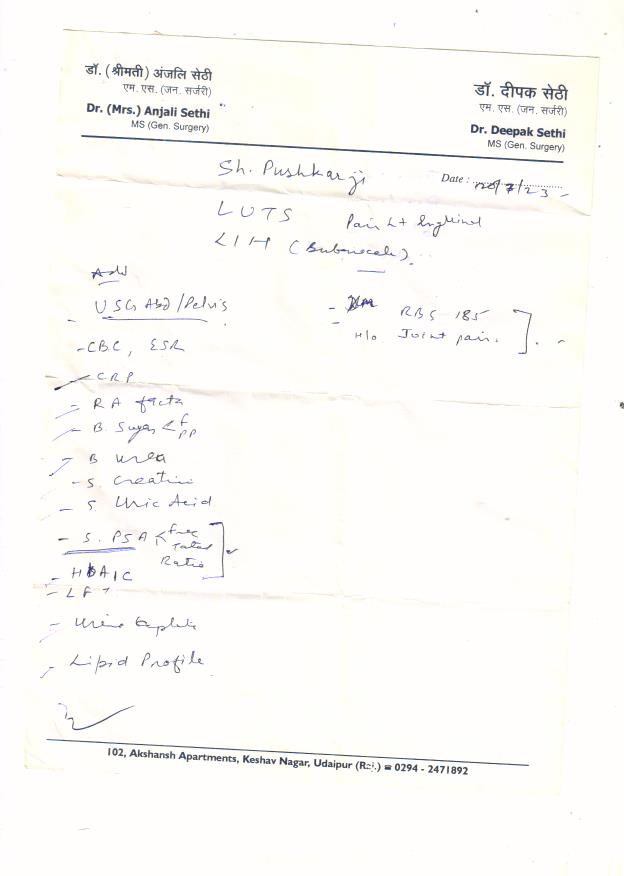 डॉ. (श्रीमती) अंजलि सेठी
एम. एस. (जन. सर्जरी)
Dr. (Mrs.) Anjali Sethi
MS (Gen. Surgery)
डॉ. दीपक सेठी
एम. एस. (जन. सर्जरी)
Dr. Deepak Sethi
MS (Gen. Surgery)
Sh. Pushkarji
Date : /7/23
LUTS
Pain Lt Inguinal
LIH (Bubonocele)
Adv
USG Abd/Pelvis
- CBC, ESR
- CRP
- RA factor
- B. Sugar < F PP
- B Urea
- S. Creatinine
- S. Uric Acid
- S. PSA < Free Total Ratio
- HbA1C
- LFT
- Urine Complete
- Lipid Profile
- RBS 185
- H/o Joint pain.
102, Akshansh Apartments, Keshav Nagar, Udaipur (Raj.) ☎ 0294 - 2471892